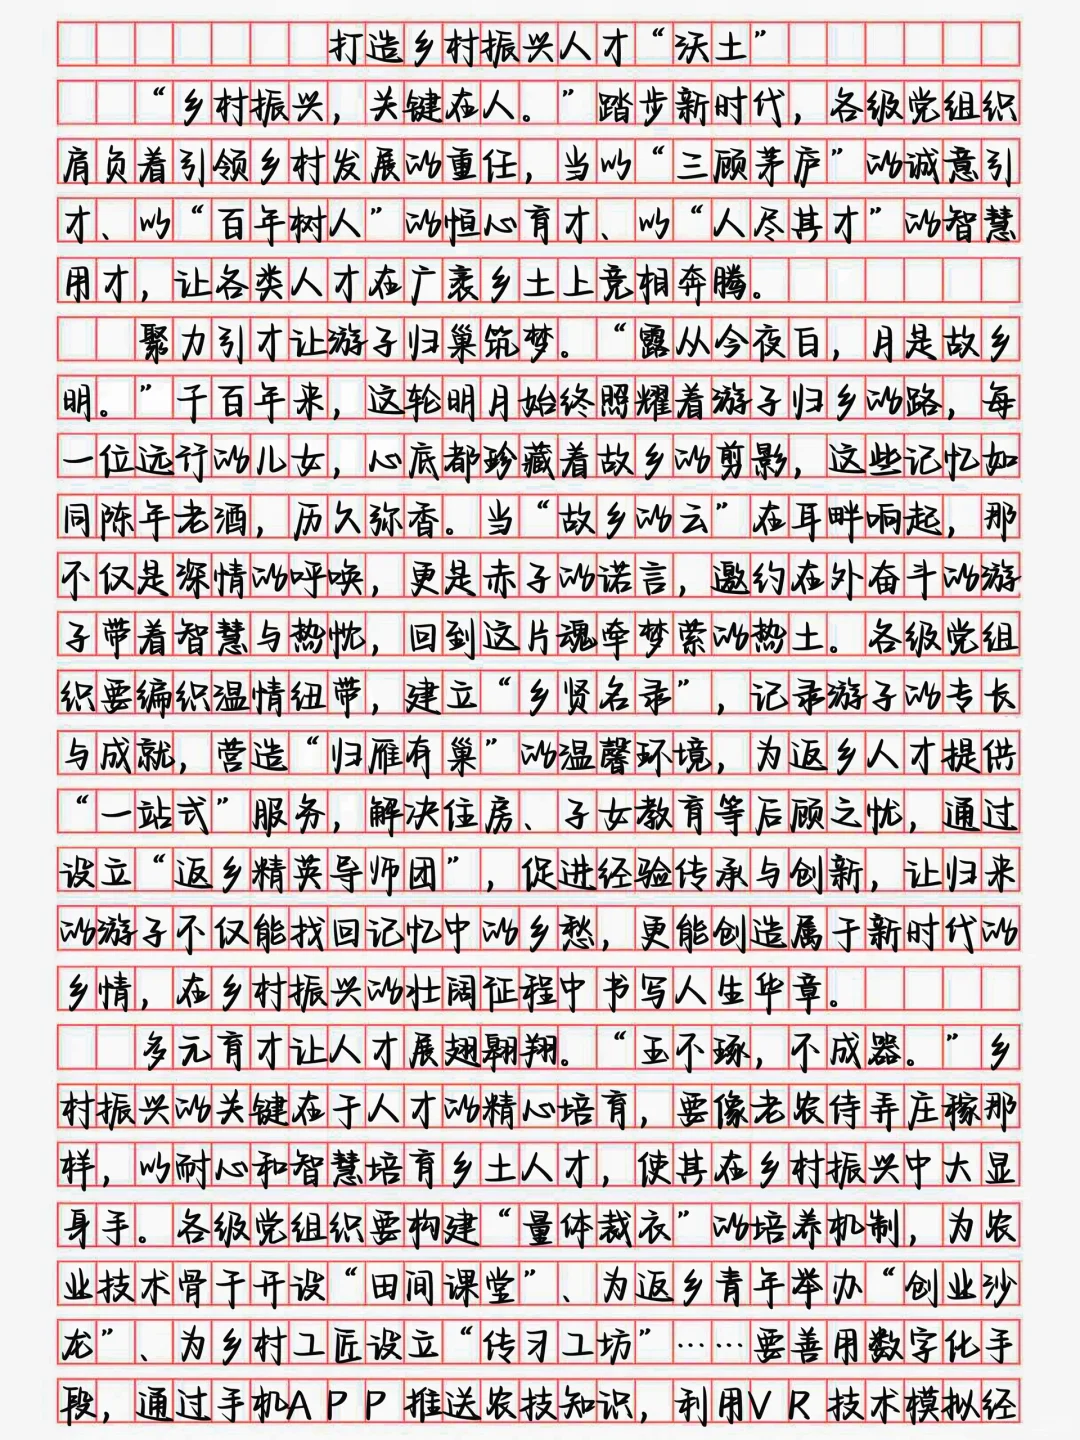 打造乡村振兴人才“沃土”
“乡村振兴，关键在人。”踏步新时代，各级党组织
肩负着引领乡村发展的重任，当以“三顾茅庐”的诚意引
才、以“百年树人”的恒心育才、以“人尽其才”的智慧
用才，让各类人才在广袤乡土上竞相奔腾。
聚力引才让游子归巢筑梦。“露从今夜白，月是故乡
明。”千百年来，这轮明月始终照耀着游子归乡的路，每
一位远行的儿女，心底都珍藏着故乡的剪影，这些记忆如
同陈年老酒，历久弥香。当“故乡的云”在耳畔响起，那
不仅是深情的呼唤，更是赤子的诺言，邀约在外奋斗的游
子带着智慧与热忱，回到这片魂牵梦萦的热土。各级党组
织要编织温情纽带，建立“乡贤名录”，记录游子的专长
与成就，营造“归雁有巢”的温馨环境，为返乡人才提供
“一站式”服务，解决住房、子女教育等后顾之忧，通过
设立“返乡精英导师团”，促进经验传承与创新，让归来
的游子不仅能找回记忆中的乡愁，更能创造属于新时代的
乡情，在乡村振兴的壮阔征程中书写人生华章。
多元育才让人才展翅翱翔。“玉不琢，不成器。”乡
村振兴的关键在于人才的精心培育，要像老农侍弄庄稼那
样，以耐心和智慧培育乡土人才，使其在乡村振兴中大显
身手。各级党组织要构建“量体裁衣”的培养机制，为农
业技术骨干开设“田间课堂”、为返乡青年举办“创业沙
龙”、为乡村工匠设立“传习工坊”……要善用数字化手
段，通过手机APP推送农技知识，利用VR技术模拟经